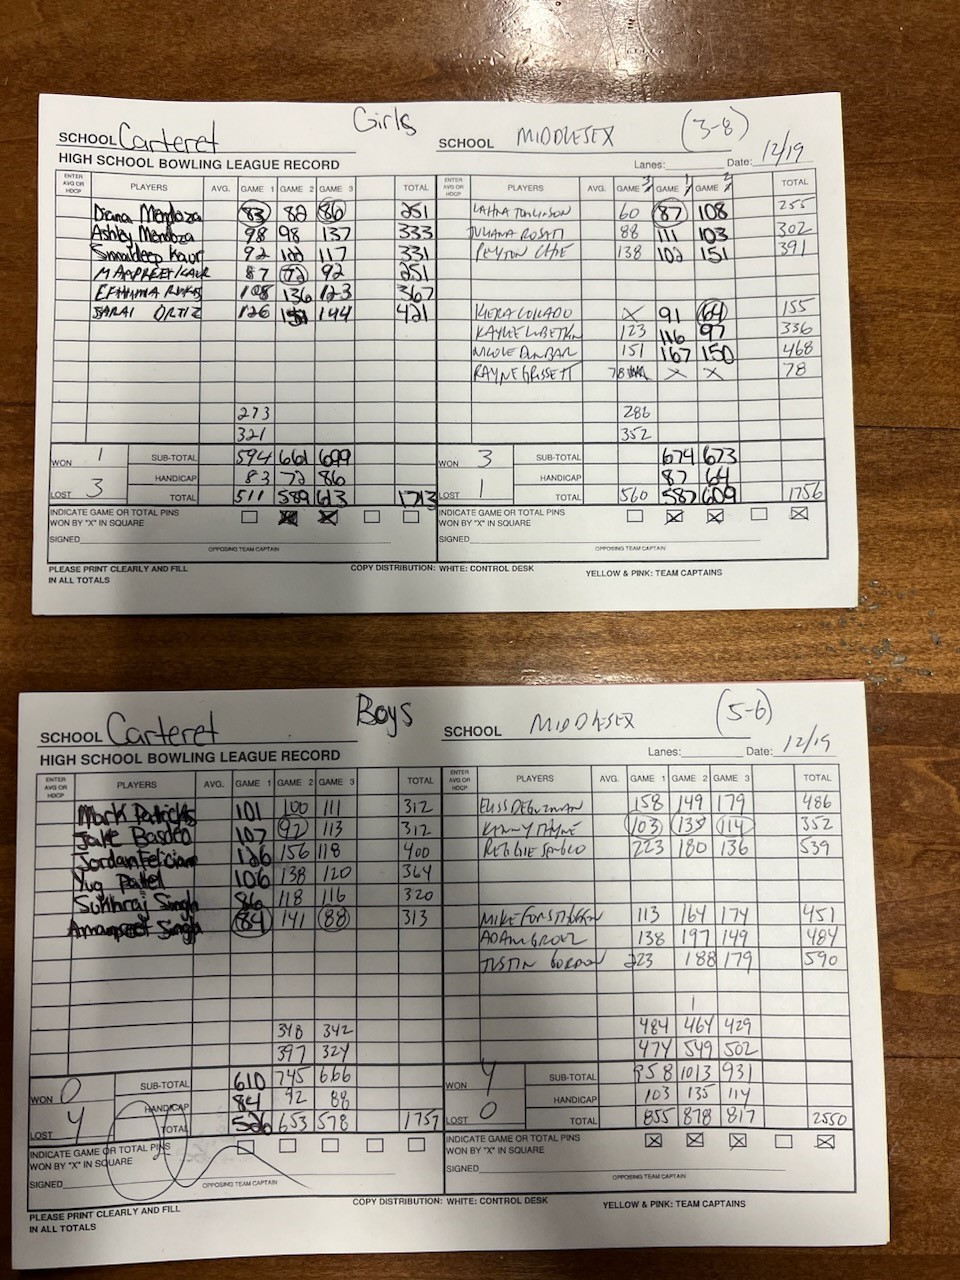 Girls
SCHOOL Carteret SCHOOL MIDDLESEX (3-8)
HIGH SCHOOL BOWLING LEAGUE RECORD Lanes: Date: 12/19
ENTER AVG OR HDCP PLAYERS AVG. GAME 1 GAME 2 GAME 3 TOTAL ENTER AVG OR HDCP PLAYERS AVG. GAME 3 GAME 1 GAME 2 TOTAL
Diana Mendoza 83 82 86 251 TOMLINSON 60 87 108 255
Ashley Mendoza 98 98 137 333 JULIANA ROSATI 88 111 103 302
Kaur 92 117 331 PEYTON 138 102 151 391
KAUR 87 72 92 251
108 136 123 367
SARAI ORTIZ 126 144 421 X 91 64 155
123 116 97 336
NICOLE DUNBAR 151 167 150 468
RAYNE GRISSETT 78 X X 78
273 286
321 352
WON 1 SUB-TOTAL 594 661 699 WON 3 SUB-TOTAL 674 673
HANDICAP 83 72 86 HANDICAP 87 64
LOST 3 TOTAL 511 589 613 1713 LOST 1 TOTAL 560 587 609 1756
INDICATE GAME OR TOTAL PINS WON BY "X" IN SQUARE X X INDICATE GAME OR TOTAL PINS WON BY "X" IN SQUARE X X X
SIGNED SIGNED
OPPOSING TEAM CAPTAIN OPPOSING TEAM CAPTAIN
PLEASE PRINT CLEARLY AND FILL IN ALL TOTALS COPY DISTRIBUTION: WHITE: CONTROL DESK YELLOW & PINK: TEAM CAPTAINS
Boys
SCHOOL Carteret SCHOOL MIDDLESEX (5-6)
HIGH SCHOOL BOWLING LEAGUE RECORD Lanes: Date: 12/19
ENTER AVG OR HDCP PLAYERS AVG. GAME 1 GAME 2 GAME 3 TOTAL ENTER AVG OR HDCP PLAYERS AVG. GAME 1 GAME 2 GAME 3 TOTAL
Mark Patricks 101 100 111 312 DEGUZMAN 158 149 179 486
Jake Basdeo 107 92 113 312 103 135 114 352
Jordan Felician 126 156 118 400 223 180 136 539
Yug Patel 106 138 120 364
Sukhraj Singh 86 118 116 320
Amanpreet Singh 84 141 88 313 MIKE 113 164 174 451
ADAM 138 197 149 484
JUSTIN GORDON 223 188 179 590
348 342 484 464 429
397 324 474 549 502
WON 0 SUB-TOTAL 610 745 666 WON 4 SUB-TOTAL 958 1013 931
HANDICAP 84 92 88 HANDICAP 103 135 114
LOST 4 TOTAL 526 653 578 1757 LOST 0 TOTAL 855 878 817 2550
INDICATE GAME OR TOTAL PINS WON BY "X" IN SQUARE INDICATE GAME OR TOTAL PINS WON BY "X" IN SQUARE X X X X
SIGNED SIGNED
OPPOSING TEAM CAPTAIN OPPOSING TEAM CAPTAIN
PLEASE PRINT CLEARLY AND FILL IN ALL TOTALS COPY DISTRIBUTION: WHITE: CONTROL DESK YELLOW & PINK: TEAM CAPTAINS